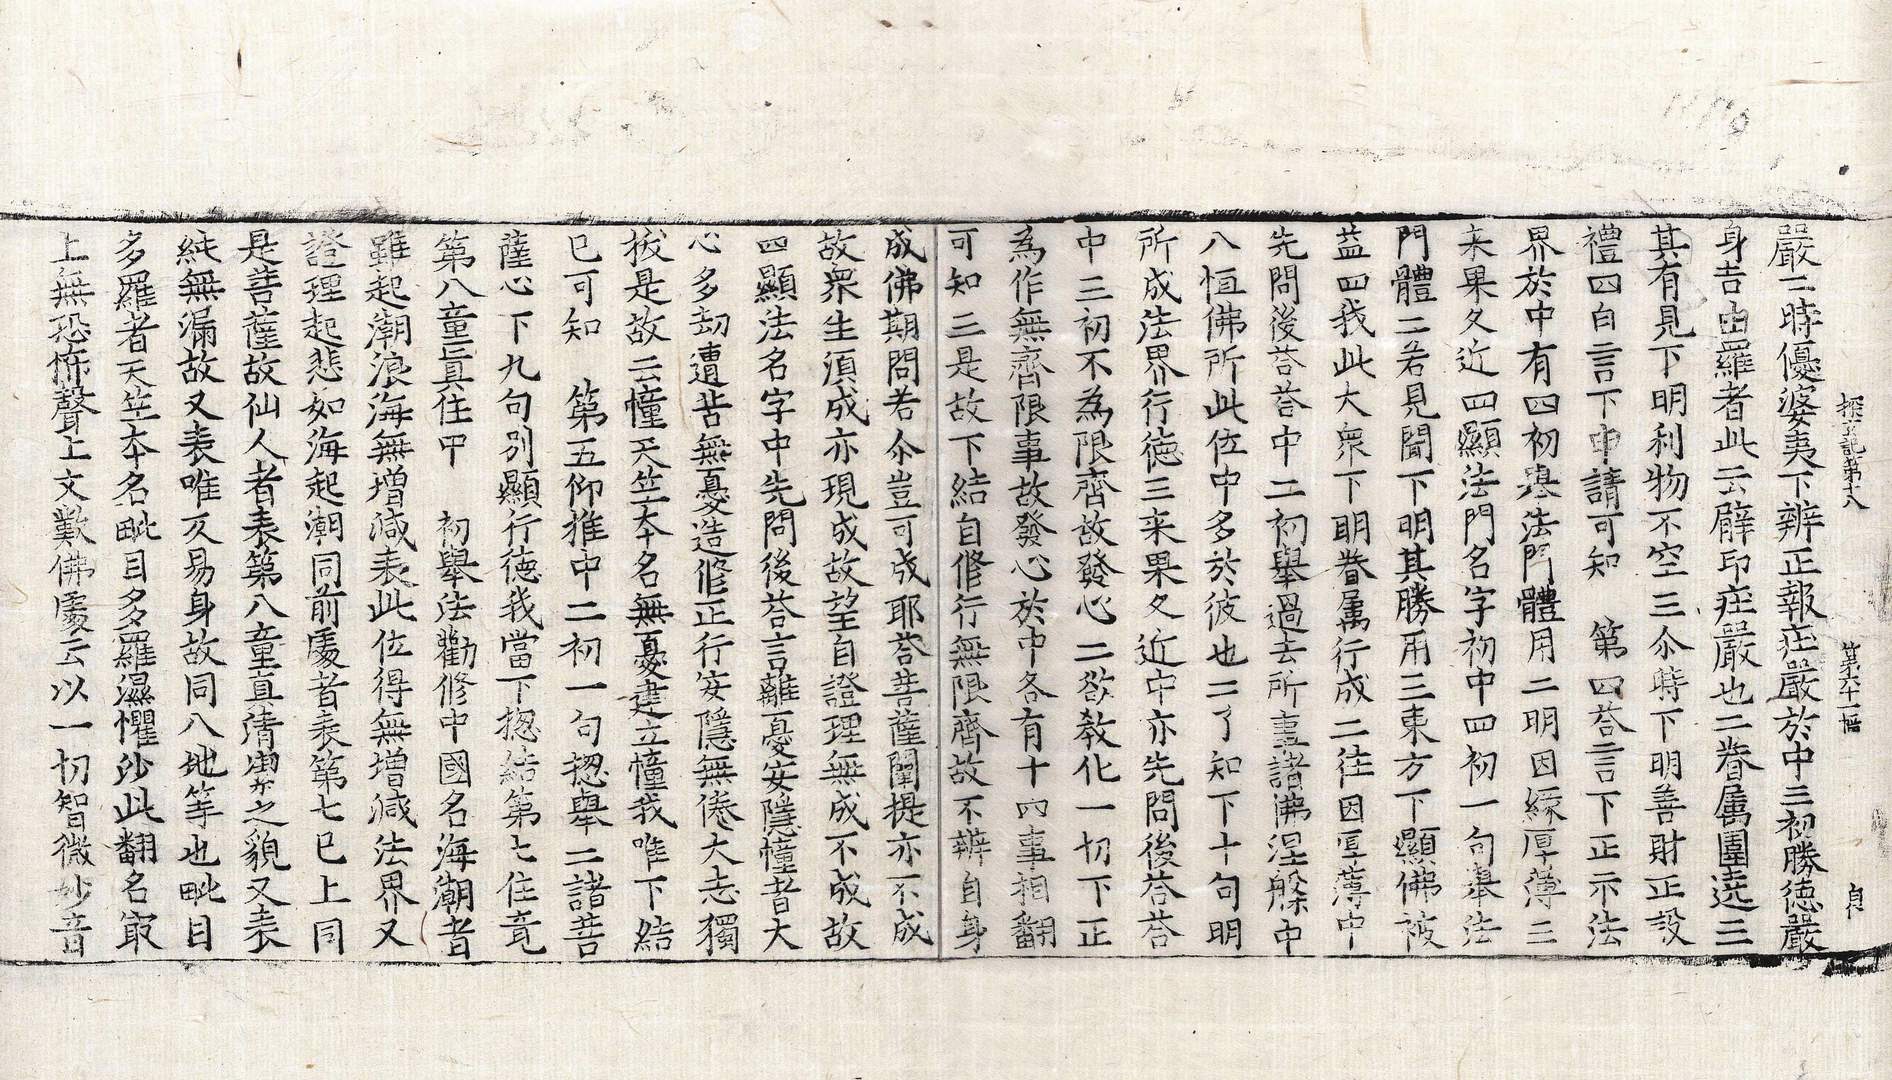 探玄記第十八　第六十一幅　貞
嚴二時優婆夷下辨正報莊嚴於中三初勝德嚴
身吉由羅者此云臂印莊嚴也二眷属圍遶三
其有見下明利物不空三尒時下明善財正設
禮四白言下申請可知　第四荅言下正示法
界於中有四初舉法門體用二明因緣厚薄三
来果久近四顯法門名字初中四初一句舉法
門體二若見聞下明其勝用三東方下顯佛被
益四我此大衆下明眷属行成二往因厚薄中
先問後荅荅中二初舉過去所事諸佛涅槃中
八恒佛所此位中多於彼也二了知下十句明
所成法界行德三来果久近中亦先問後荅荅
中三初不為限齊故發心二欲教化一切下正
為作無齊限事故發心於中各有十六事相翻
可知三是故下結自修行無限齊故不辨自身
成佛期問若尒豈可成耶荅菩薩闡提亦不成
故衆生須成亦現成故望自證理無成不成故
四顯法名字中先問後荅言離憂安隱幢者大
心多劫遭苦無憂造修正行安隱無倦大志獨
拔是故云幢天竺本名無憂建立幢我唯下結
已可知　第五仰推中二初一句揔舉二諸菩
薩心下九句別顯行德我當下揔結第七住竟
第八童真住中　初舉法勸修中國名海潮者
雖起潮浪海無增減表此位得無增減法界又
證理起悲如海起潮同前處者表第七已上同
是菩薩故仙人者表第八童真清素之貌又表
純無漏故又表唯天易身故同八地等也毗目
多羅者天竺本名毗目多羅濕懼沙此翻名㝡
上無恐怖聲上文歎佛處云以一切智微妙音